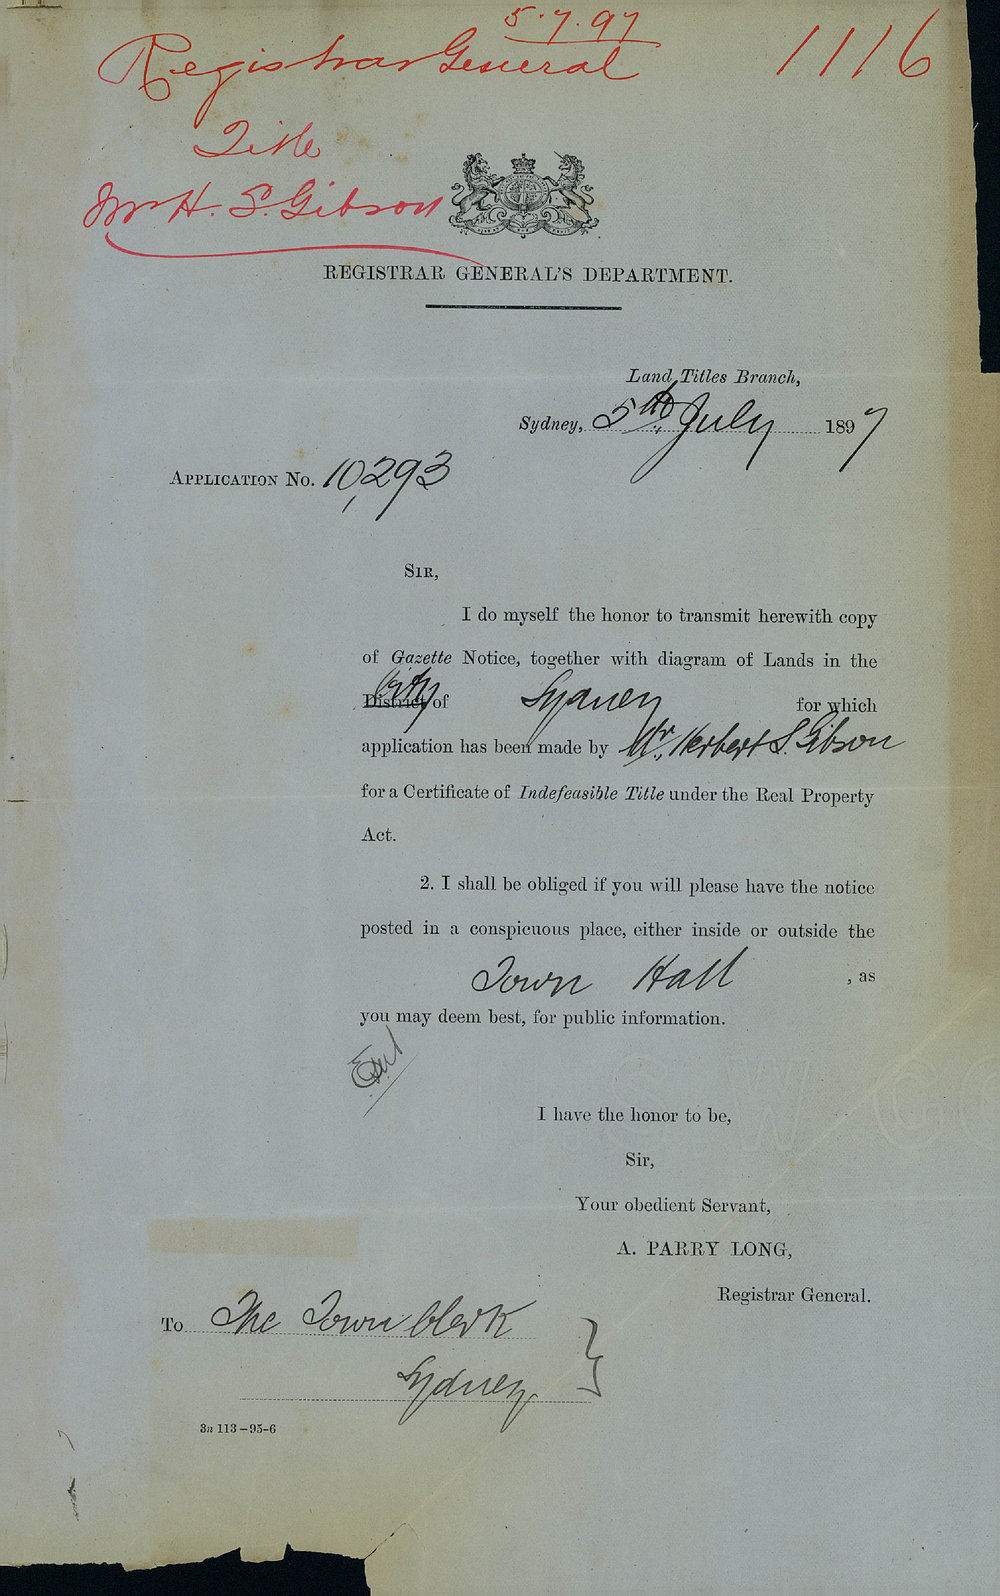 5.7.97
Registrar General
1116
Title
Mr H. S. Gibson
REGISTRAR GENERAL'S DEPARTMENT.
Land Titles Branch,
Sydney, 5th July 1897
APPLICATION No. 10,293
SIR,
I do myself the honor to transmit herewith copy
of Gazette Notice, together with diagram of Lands in the
City
District of Sydney for which
application has been made by Mr. Herbert S. Gibson
for a Certificate of Indefeasible Title under the Real Property
Act.
2. I shall be obliged if you will please have the notice
posted in a conspicuous place, either inside or outside the
Town Hall , as
you may deem best, for public information.
I have the honor to be,
Sir,
Your obedient Servant,
A. PARRY LONG,
Registrar General.
To The Town Clerk
Sydney.
3n 113–95-6